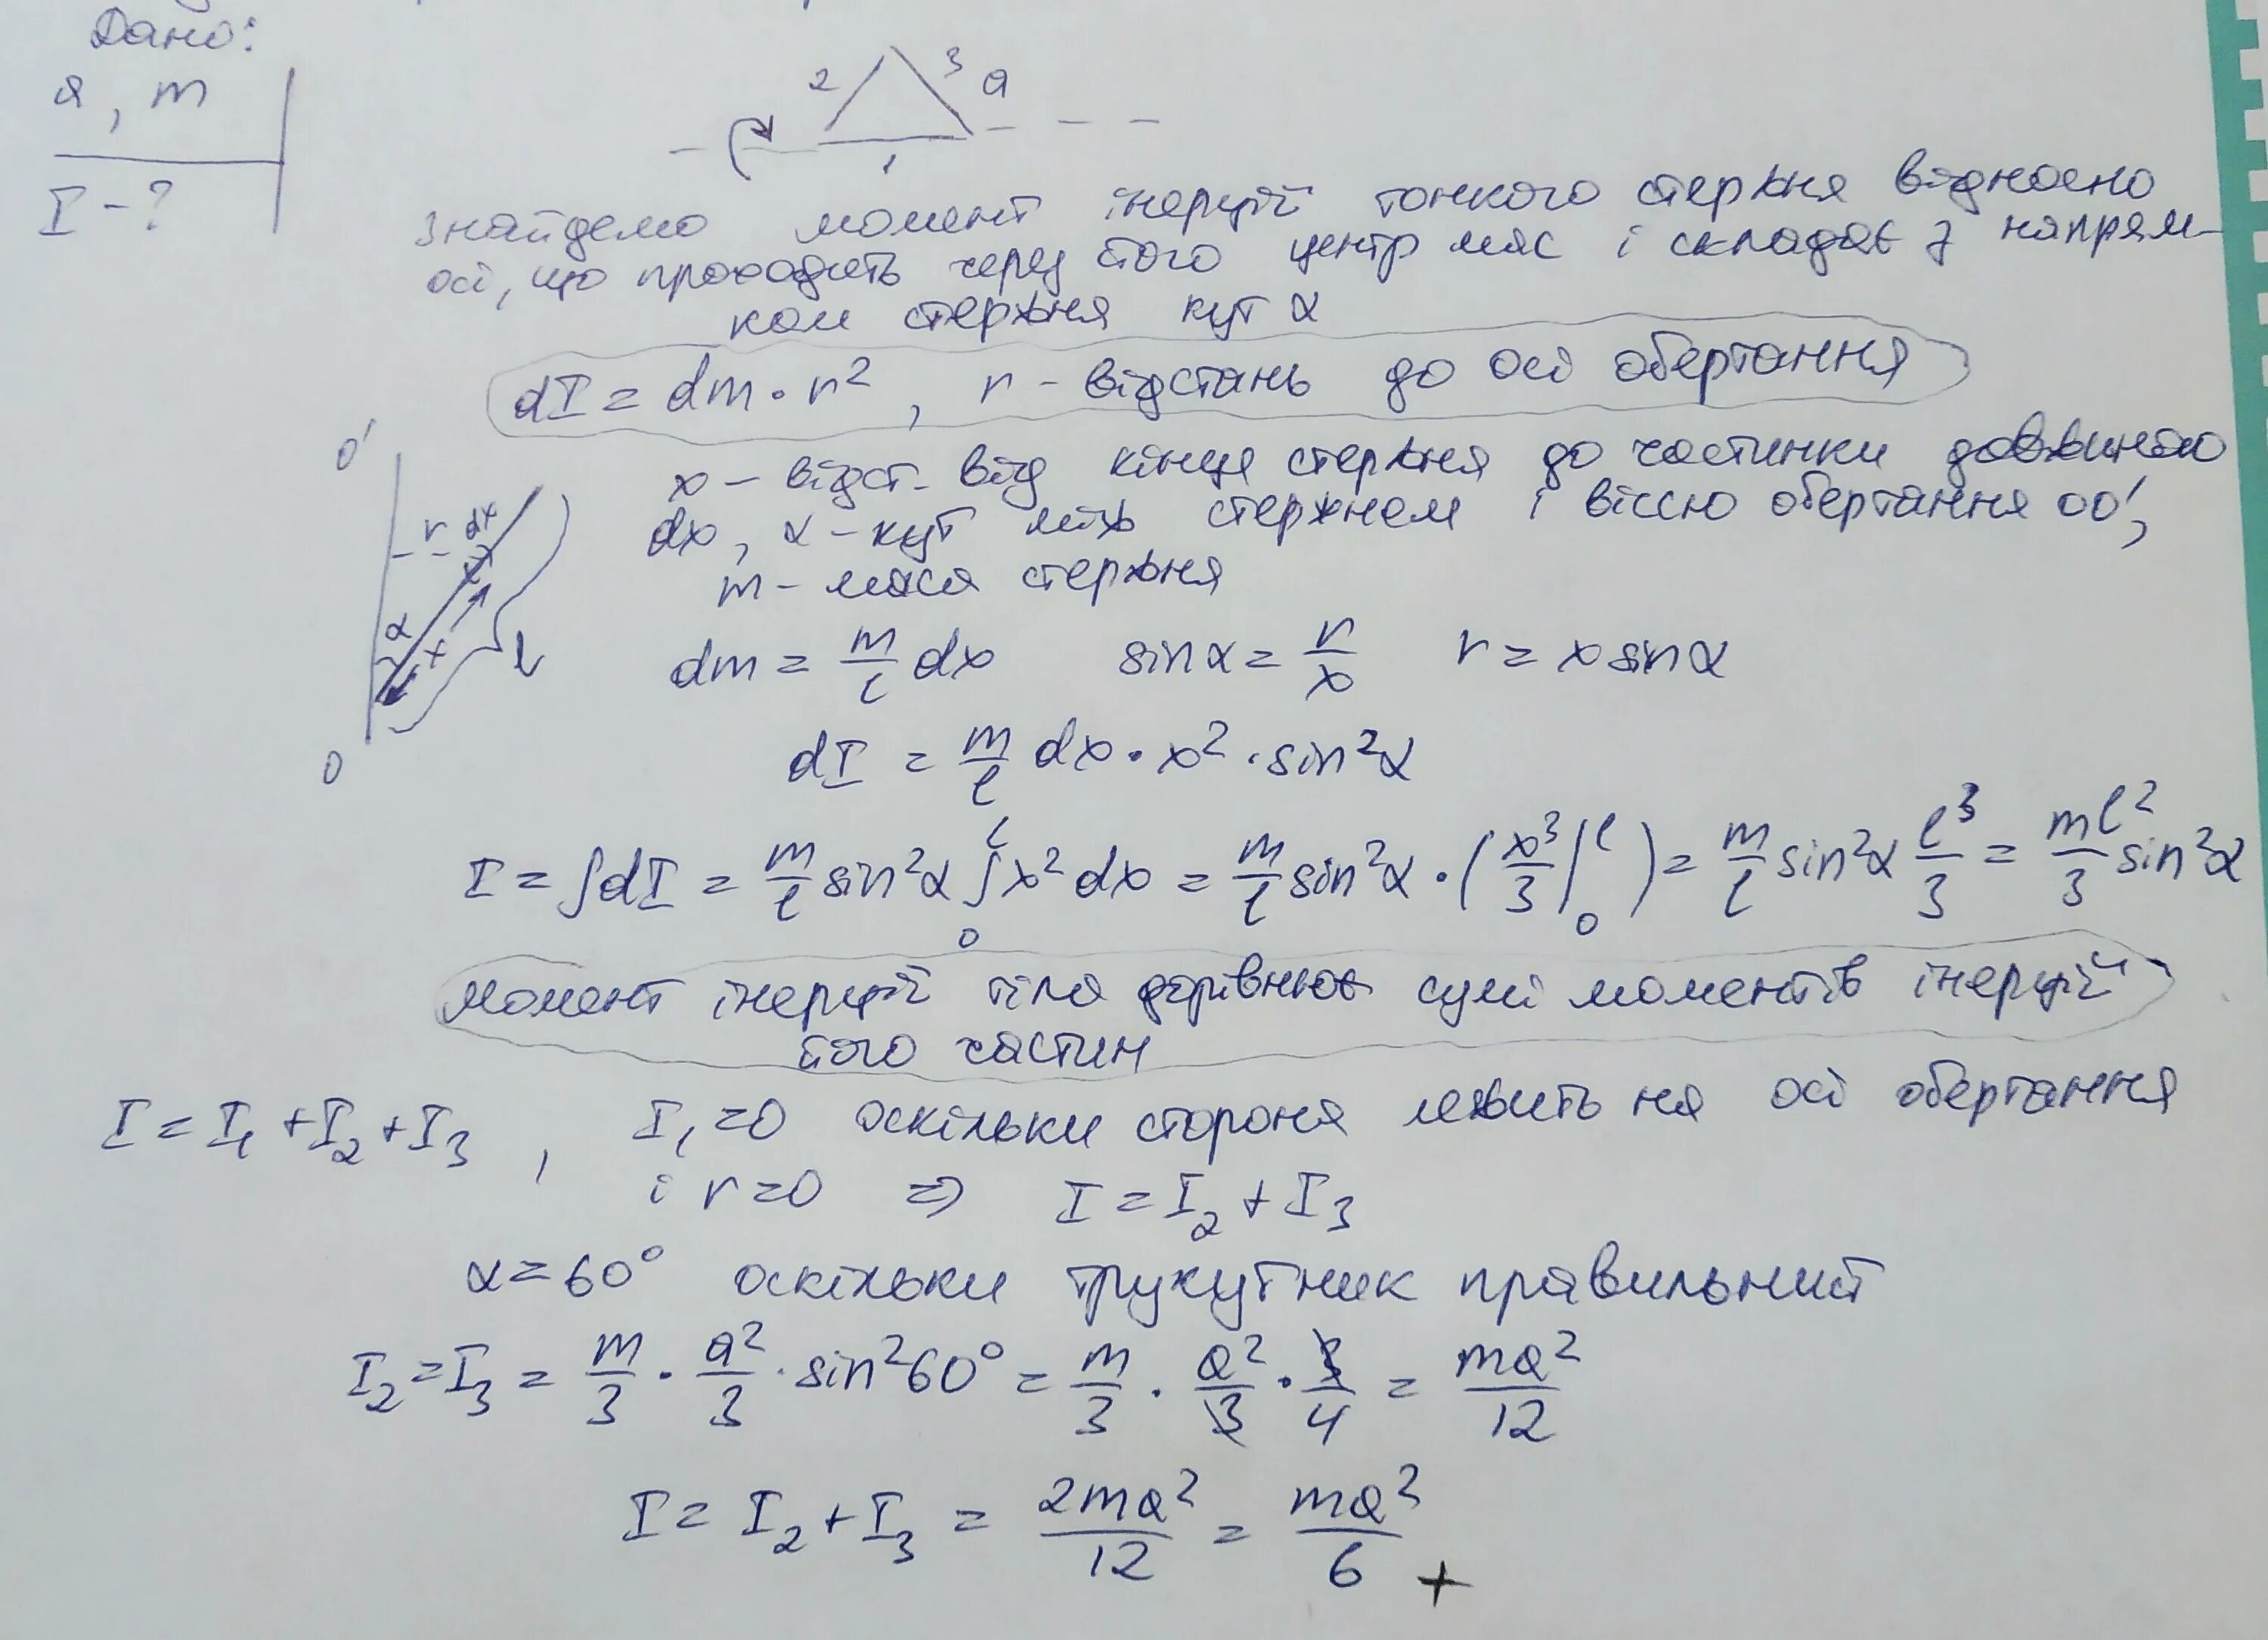 Дано:
a, m
I - ?
2 3 a
1
Знайдемо момент інерції тонкого стержня відносно
осі, що проходить через його центр мас і складає з напрям-
ком стержня кут α
dI = dm · r², r - відстань до осі обертання
O'
x - відст. від кінця стержня до частинки довжиною
dx, α - кут між стержнем і віссю обертання OO',
m - маса стержня
r dx
α x l
O
dm = m/l dx sinα = r/x r = x sinα
dI = m/l dx · x² · sin²α
I = ∫dI = m/l sin²α ∫₀ˡ x² dx = m/l sin²α · (x³/3 |₀ˡ) = m/l sin²α l³/3 = ml²/3 sin²α
Момент інерції тіла дорівнює сумі моментів інерції
його частин
I = I₁ + I₂ + I₃, I₁ = 0 оскільки сторона лежить на осі обертання
і r = 0 ⇒ I = I₂ + I₃
α = 60° оскільки трикутник правильний
I₂ = I₃ = m/3 · a²/3 · sin²60° = m/3 · a²/3 · 3/4 = ma²/12
I = I₂ + I₃ = 2ma²/12 = ma²/6 +